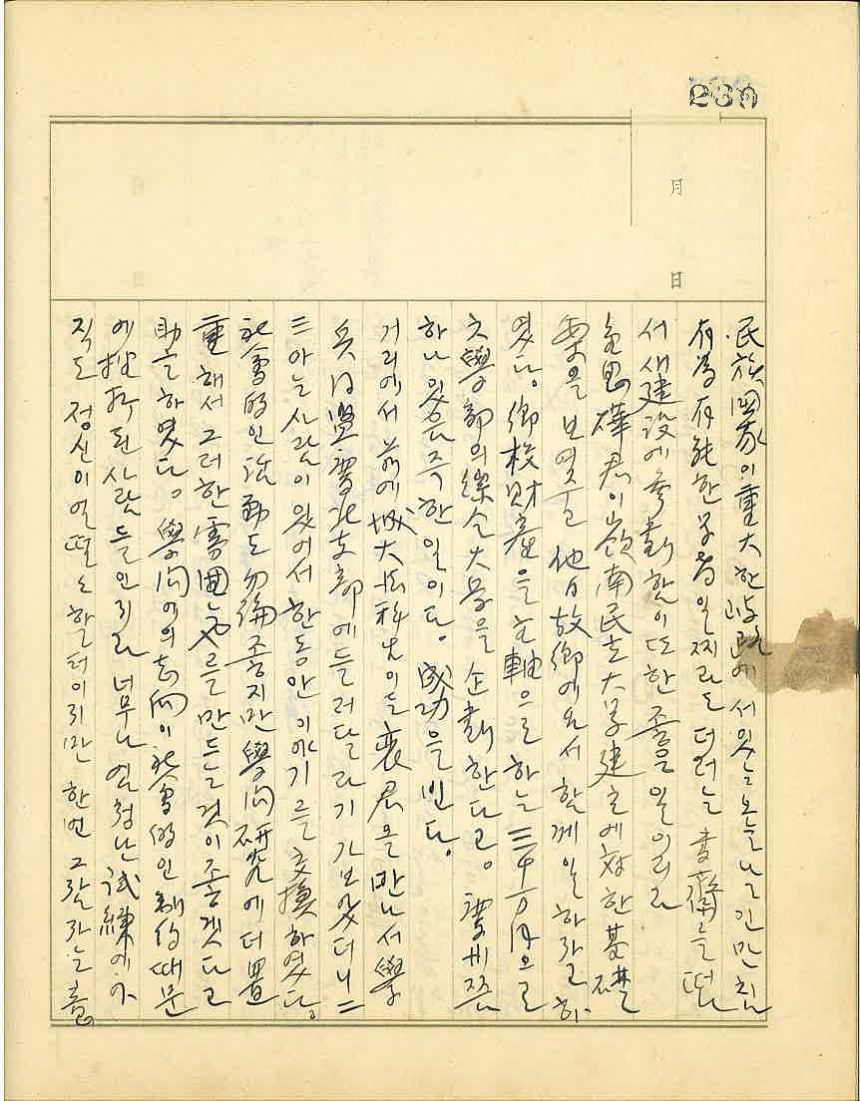 230
月
日
民族國家이 重大한 岐路에 서 있는 오늘날인 만침
有為有能한 学者일찌라도 더러는 書齋를 떠나
서 새 建設에 参劃함이 또한 좋은 일이리라
君이 嶺南民立大学 建立에 対한 基礎
案을 보엿고 他日 故鄕에 와서 함께 일하자고 하
엿다。 鄕校財産을 主軸으로 하는 三千万円으로
文學部의 綜合大学을 企劃한다고。
하나 있음즉한 일이다。 成功을 빈다。
거리에서 前에 城大 法科 出이든 裵君을 만나서 學
兵同盟 支部에 들러달라기 가보았더니 二
三 아는 사람이 있어서 한동안 이야기를 交換하였다。
社會的인 活動도 勿論 좋지만 學問硏究에 더 置
重해서 그러한 雰圍氣를 만드는 것이 좋겟다고
助言하였다。 學問에의 志向이 社會的인 制約 때문
에 挫折된 사람들인지라 너무나 엄청난 試練에 아
직도 정신이 얼떨도 할 터이지만 한번 그랄라는